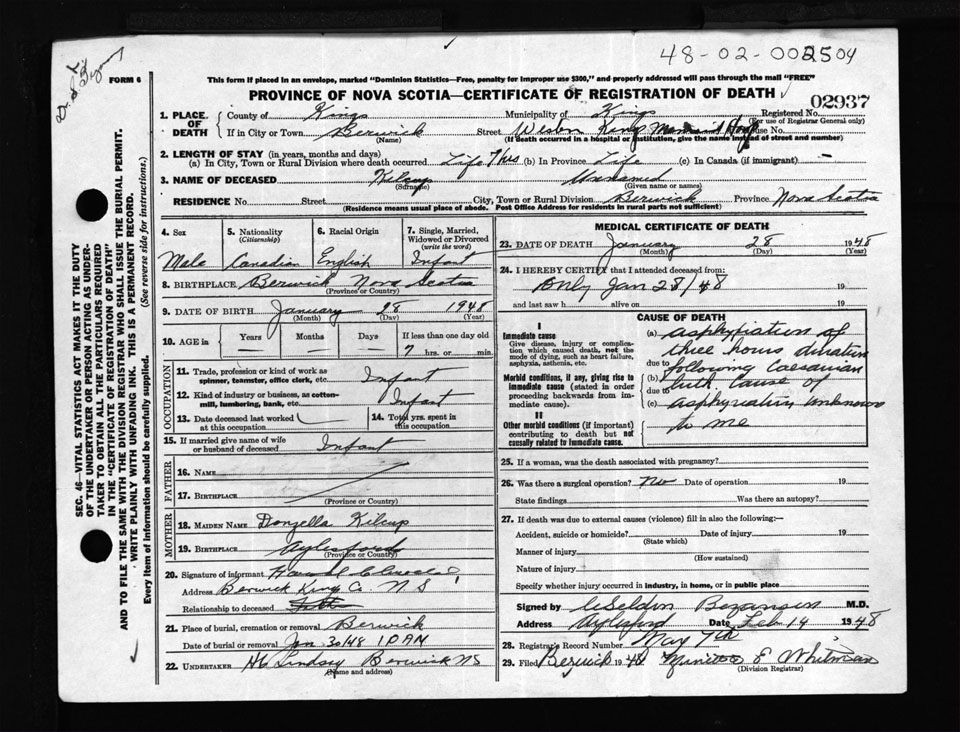 48-02-002504
FORM 6
This form if placed in an envelope, marked "Dominion Statistics—Free, penalty for improper use $300," and properly addressed will pass through the mail "FREE"
PROVINCE OF NOVA SCOTIA—CERTIFICATE OF REGISTRATION OF DEATH
02937
1. PLACE OF DEATH
County of Kings
Municipality of Kings
Registered No.
(For use of Registrar General only)
If in City or Town Berwick
Street Western Kings Memorial Hosp House No.
(Name)
(If death occurred in a hospital or institution, give the name instead of street and number)
2. LENGTH OF STAY (in years, months and days)
(a) In City, Town or Rural Division where death occurred Life 7 hrs (b) In Province Life (c) In Canada (if immigrant) —
3. NAME OF DECEASED Kilcup Unnamed
(Surname) (Given name or names)
RESIDENCE No. Street City, Town or Rural Division Berwick Province Nova Scotia
(Residence means usual place of abode. Post Office Address for residents in rural parts not sufficient)
4. Sex
Male
5. Nationality
(Citizenship)
Canadian
6. Racial Origin
English
7. Single, Married, Widowed or Divorced
(write the word)
Infant
8. BIRTHPLACE Berwick Nova Scotia
(Province or Country)
9. DATE OF BIRTH January 28 1948
(Month) (Day) (Year)
10. AGE in
Years Months Days If less than one day old
— — — 7 hrs. or min.
OCCUPATION
11. Trade, profession or kind of work as spinner, teamster, office clerk, etc. Infant
12. Kind of industry or business, as cotton-mill, lumbering, bank, etc. Infant
13. Date deceased last worked at this occupation
14. Total yrs. spent in this occupation
15. If married give name of wife or husband of deceased Infant
FATHER
16. NAME
17. BIRTHPLACE
(Province or Country)
MOTHER
18. MAIDEN NAME Donzella Kilcup
19. BIRTHPLACE Aylesford
(Province or Country)
20. Signature of informant Harold
Address Berwick Kings Co. N S
Relationship to deceased
21. Place of burial, cremation or removal Berwick
Date of burial or removal Jan. 30/48 10 AM
22. UNDERTAKER H C Lindsay Berwick NS
(Name and address)
MEDICAL CERTIFICATE OF DEATH
23. DATE OF DEATH January 28 1948
(Month) (Day) (Year)
24. I HEREBY CERTIFY that I attended deceased from:
Only Jan 28/48 19
and last saw h alive on 19
CAUSE OF DEATH
I
Immediate cause
Give disease, injury or complication which caused death, not the mode of dying, such as heart failure, asphyxia, asthenia, etc.
Morbid conditions, if any, giving rise to immediate cause (stated in order proceeding backwards from immediate cause).
II
Other morbid conditions (if important) contributing to death but not causally related to immediate cause.
(a) asphyxiation of
three hours duration
due to following Caesarian
(b) birth. Cause of
due to
(c) asphyxiation unknown
to me
25. If a woman, was the death associated with pregnancy?
26. Was there a surgical operation? No Date of operation 19
State findings Was there an autopsy?
27. If death was due to external causes (violence) fill in also the following:—
Accident, suicide or homicide? Date of injury 19
(State which)
Manner of injury
(How sustained)
Nature of injury
Specify whether injury occurred in industry, in home, or in public place
Signed by Weldon Bezanson M.D.
Address Aylesford Date Feb 14 1948
28. Registrar's Record Number May 7th
29. Filed Berwick 1948 E Whitman
(Division Registrar)
SEC. 46—VITAL STATISTICS ACT MAKES IT THE DUTY
OF THE UNDERTAKER OR PERSON ACTING AS UNDER-
TAKER TO OBTAIN ALL THE PARTICULARS REQUIRED
IN THE "CERTIFICATE OF REGISTRATION OF DEATH"
AND TO FILE THE SAME WITH THE DIVISION REGISTRAR WHO SHALL ISSUE THE BURIAL PERMIT.
WRITE PLAINLY WITH UNFADING INK. THIS IS A PERMANENT RECORD.
Every item of Information should be carefully supplied. (See reverse side for instructions.)